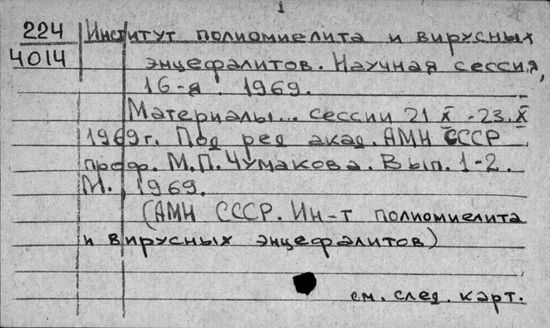 1
224
4014
Институт полиомиелита и вирусных
энцефалитов. Научная сессия,
16-я. 1969.
Материалы... сессии 21 X - 23.X
1969г. Под ред акад. АМН СССР
проф. М.П. Чумакова. Вып. 1-2.
М. 1969.
(АМН СССР. Ин-т полиомиелита
и вирусных энцефалитов)
см. след. карт.